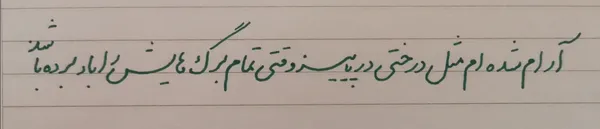 آرام شده ام مثل درختی در پاییز وقتی تمام برگ هایش را باد برده باشد